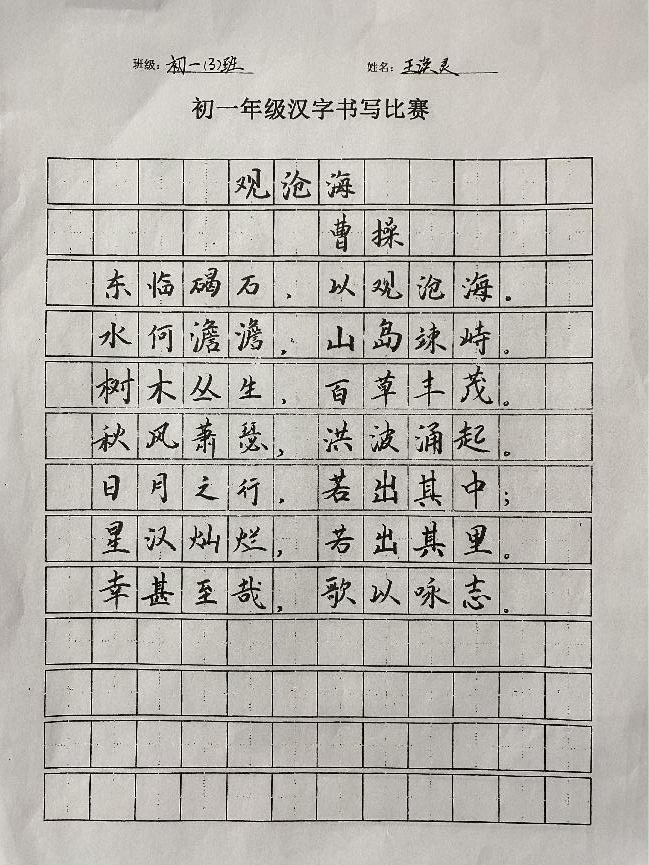 班级：初一(3)班 姓名：王洪灵
初一年级汉字书写比赛
观沧海
曹操
东临碣石，以观沧海。
水何澹澹，山岛竦峙。
树木丛生，百草丰茂。
秋风萧瑟，洪波涌起。
日月之行，若出其中；
星汉灿烂，若出其里。
幸甚至哉，歌以咏志。